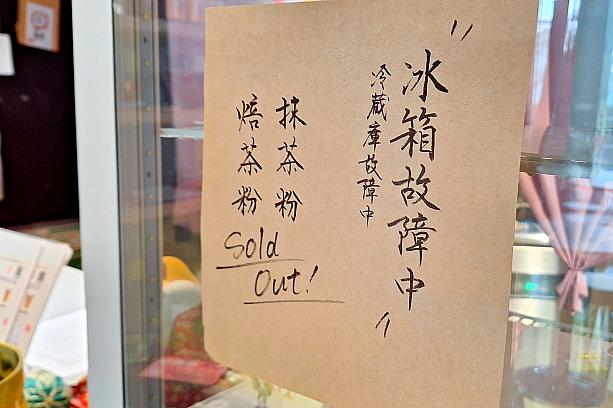 〃冰箱故障中〃
冷蔵庫故障中
抹茶粉
焙茶粉
Sold
Out!